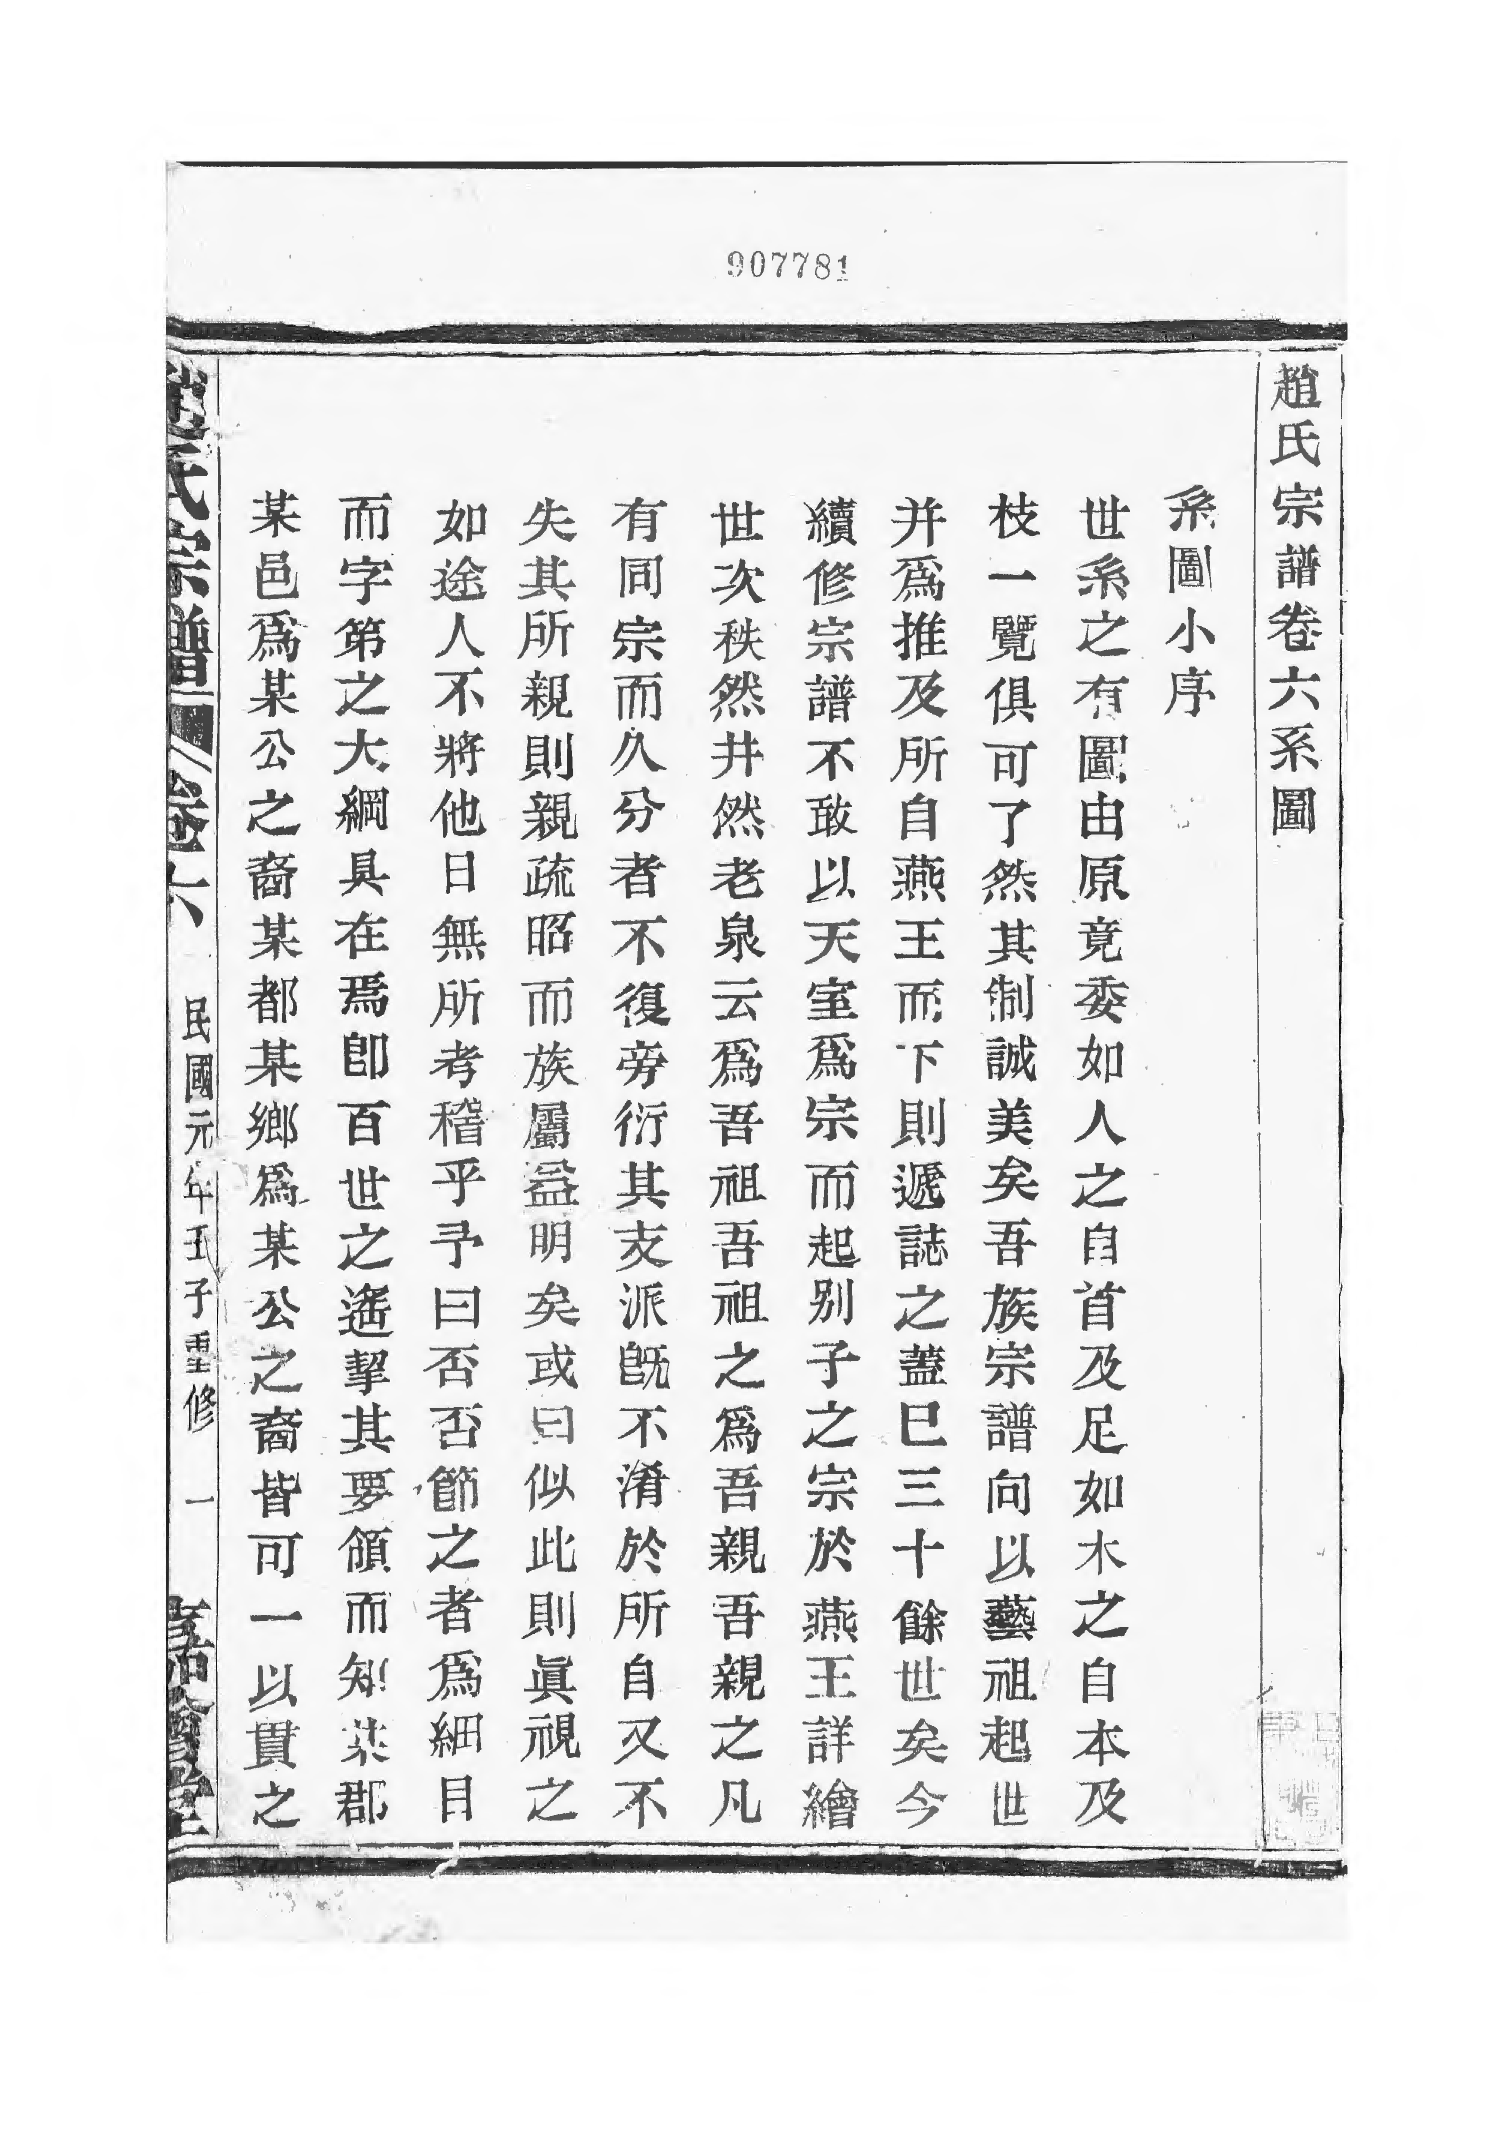 907781
趙氏宗譜卷六系圖
系圖小序
世系之有圖由原竟委如人之自首及足如木之自本及
枝一覽俱可了然其制誠美矣吾族宗譜向以藝祖起世
并爲推及所自燕王而下則遞誌之蓋巳三十餘世矣今
續修宗譜不敢以天室爲宗而起别子之宗於燕王詳繪
世次秩然井然老泉云爲吾祖吾祖之爲吾親吾親之凡
有同宗而久分者不復旁衍其支派旣不淆於所自又不
失其所親則親疏昭而族屬益明矣或曰似此則眞視之
如途人不將他日無所考稽乎予曰否否節之者爲細目
而字第之大綱具在焉卽百世之遙挈其要領而知某郡
某邑爲某公之裔某都某鄉爲某公之裔皆可一以貫之
趙氏宗譜 卷六 民國元年壬子重修 一